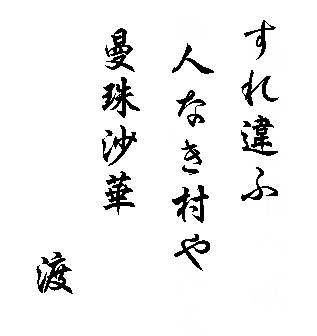 すれ違ふ
人なき村や
曼珠沙華
渡